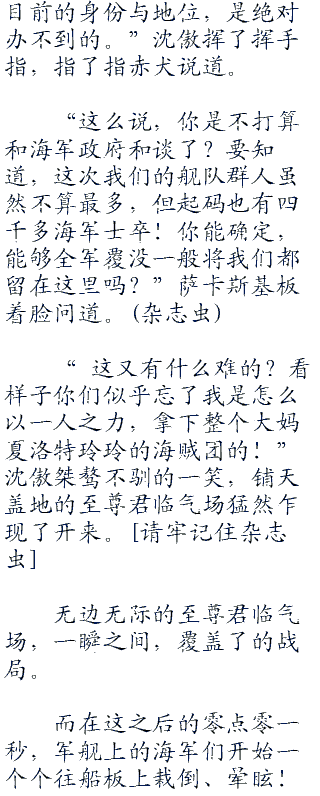 目前的身份与地位，是绝对
办不到的。”沈傲挥了挥手
指，指了指赤犬说道。
“这么说，你是不打算
和海军政府和谈了？要知
道，这次我们的舰队群人虽
然不算最多，但起码也有四
千多海军士卒！你能确定，
能够全军覆没一般将我们都
留在这里吗？”萨卡斯基板
着脸问道。(杂志虫)
“ 这又有什么难的？看
样子你们似乎忘了我是怎么
以一人之力，拿下整个大妈
夏洛特玲玲的海贼团的！”
沈傲桀骜不驯的一笑，铺天
盖地的至尊君临气场猛然乍
现了开来。[请牢记住杂志
虫]
无边无际的至尊君临气
场，一瞬之间，覆盖了的战
局。
而在这之后的零点零一
秒，军舰上的海军们开始一
个个往船板上栽倒、晕眩！